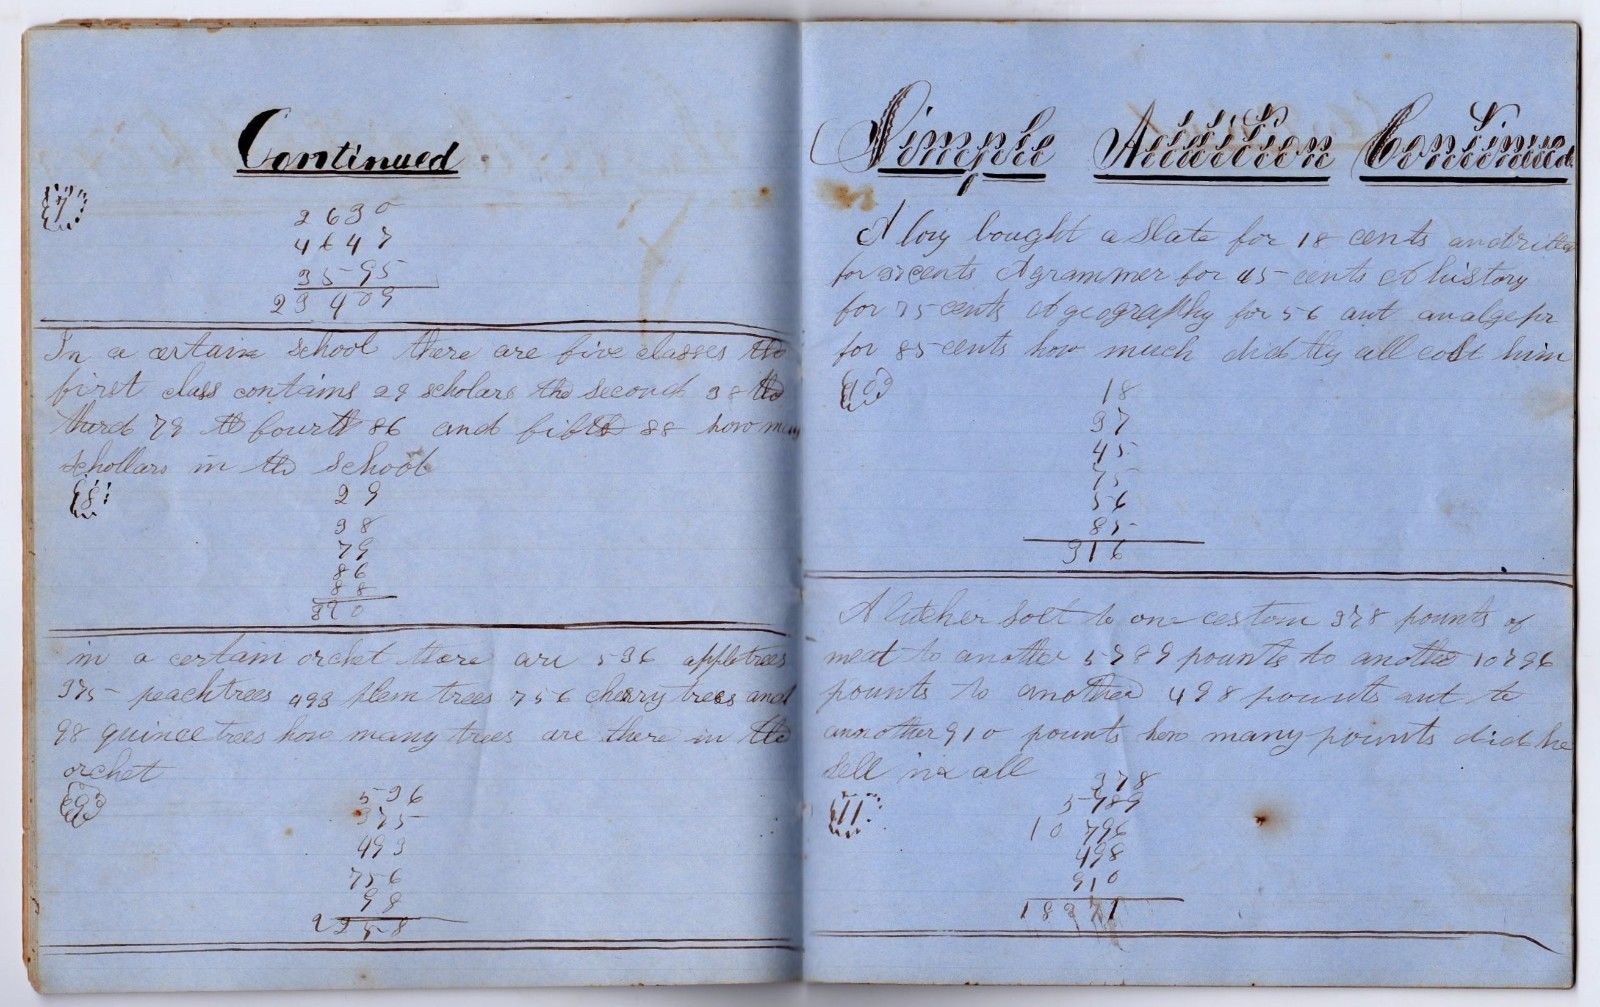 Continued
7
2630
4647
3595
29409
In a certain school there are five classes the
first class contains 29 scholars the second 38 the
third 79 the fourth 86 and fifth 88 how many
schollars in the school
8
29
38
79
86
88
320
in a certain orchet there are 536 appletrees
375 peachtrees 493 plem trees 756 cherry trees and
98 quince trees how many trees are there in the
orchet
9
536
375
493
756
98
2258
Simple Addition Continued
A boy bought a slate for 18 cents and
for 37 cents A grammer for 45 cents A history
for 75 cents A geography for 56 ant an
for 85 cents how much did they all cost him
10
18
37
45
75
56
85
316
A butcher solt to one costom 378 pounts of
meat to another 5789 pounts to another 10796
pounts to another 498 pounts ant to
annother 910 pounts how many pounts did he
sell in all
11
378
5789
10796
498
910
18371